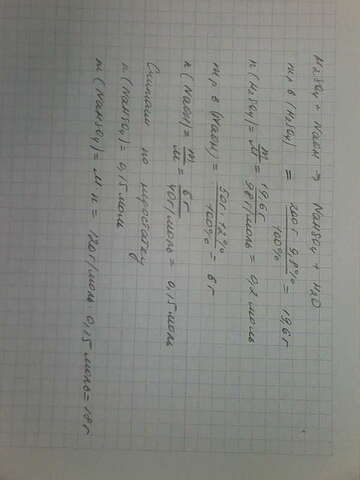 H₂SO₄ + NaOH → NaHSO₄ + H₂O
m р.в (H₂SO₄) = 200г · 9,8% / 100% = 19,6 г
n (H₂SO₄) = m / M = 19,6 г / 98 г/моль = 0,2 моль
m р.в (NaOH) = 50г · 12% / 100% = 6 г
n (NaOH) = m / M = 6 г / 40 г/моль = 0,15 моль
Считаем по недостатку
n (NaHSO₄) = 0,15 моль
m (NaHSO₄) = M · n = 120 г/моль · 0,15 моль = 18 г